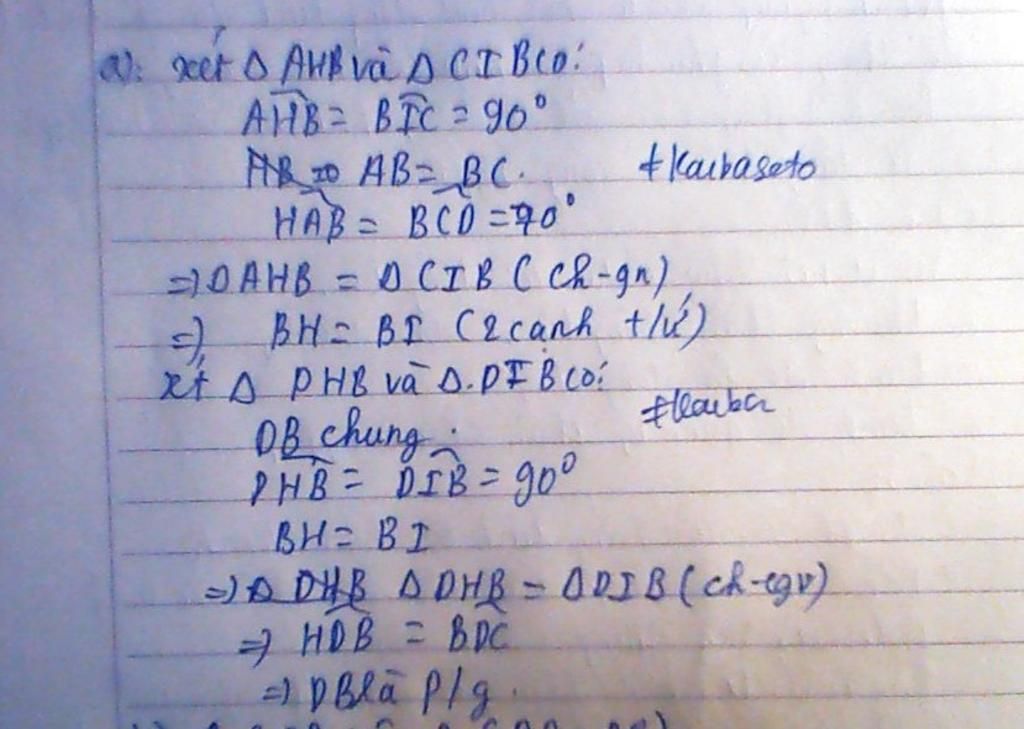 a): xét Δ AHB và Δ CIB có:
AHB = BIC = 90°
AB = BC. #Kaibaseto
HAB = BCD = 70°
=) Δ AHB = Δ CIB (ch-gn)
=) BH = BI (2 cạnh t/ứ)
xét Δ DHB và Δ. DIB có: #Kaiba
DB chung.
DHB = DIB = 90°
BH = BI
=) Δ DHB Δ DHB = Δ DIB (ch-cgv)
=) HDB = BDC
=) DB là p/g.